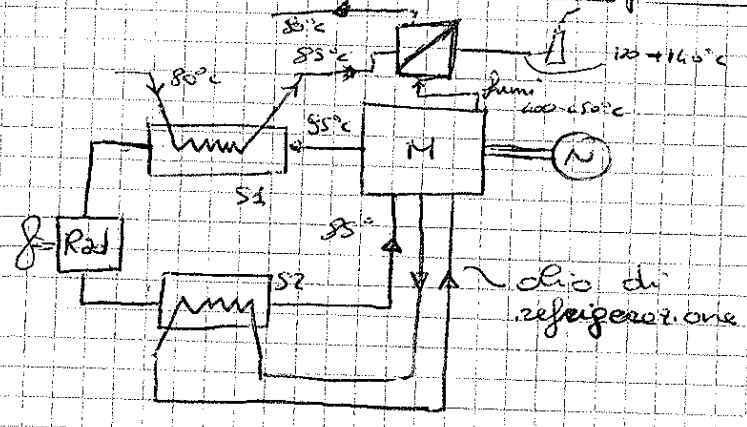 80°c
85°c
120 ÷ 140°c
80°c
fumi
400-450°c
95°c
M
N
S1
85°
Rad
S2
olio di
refrigerazione